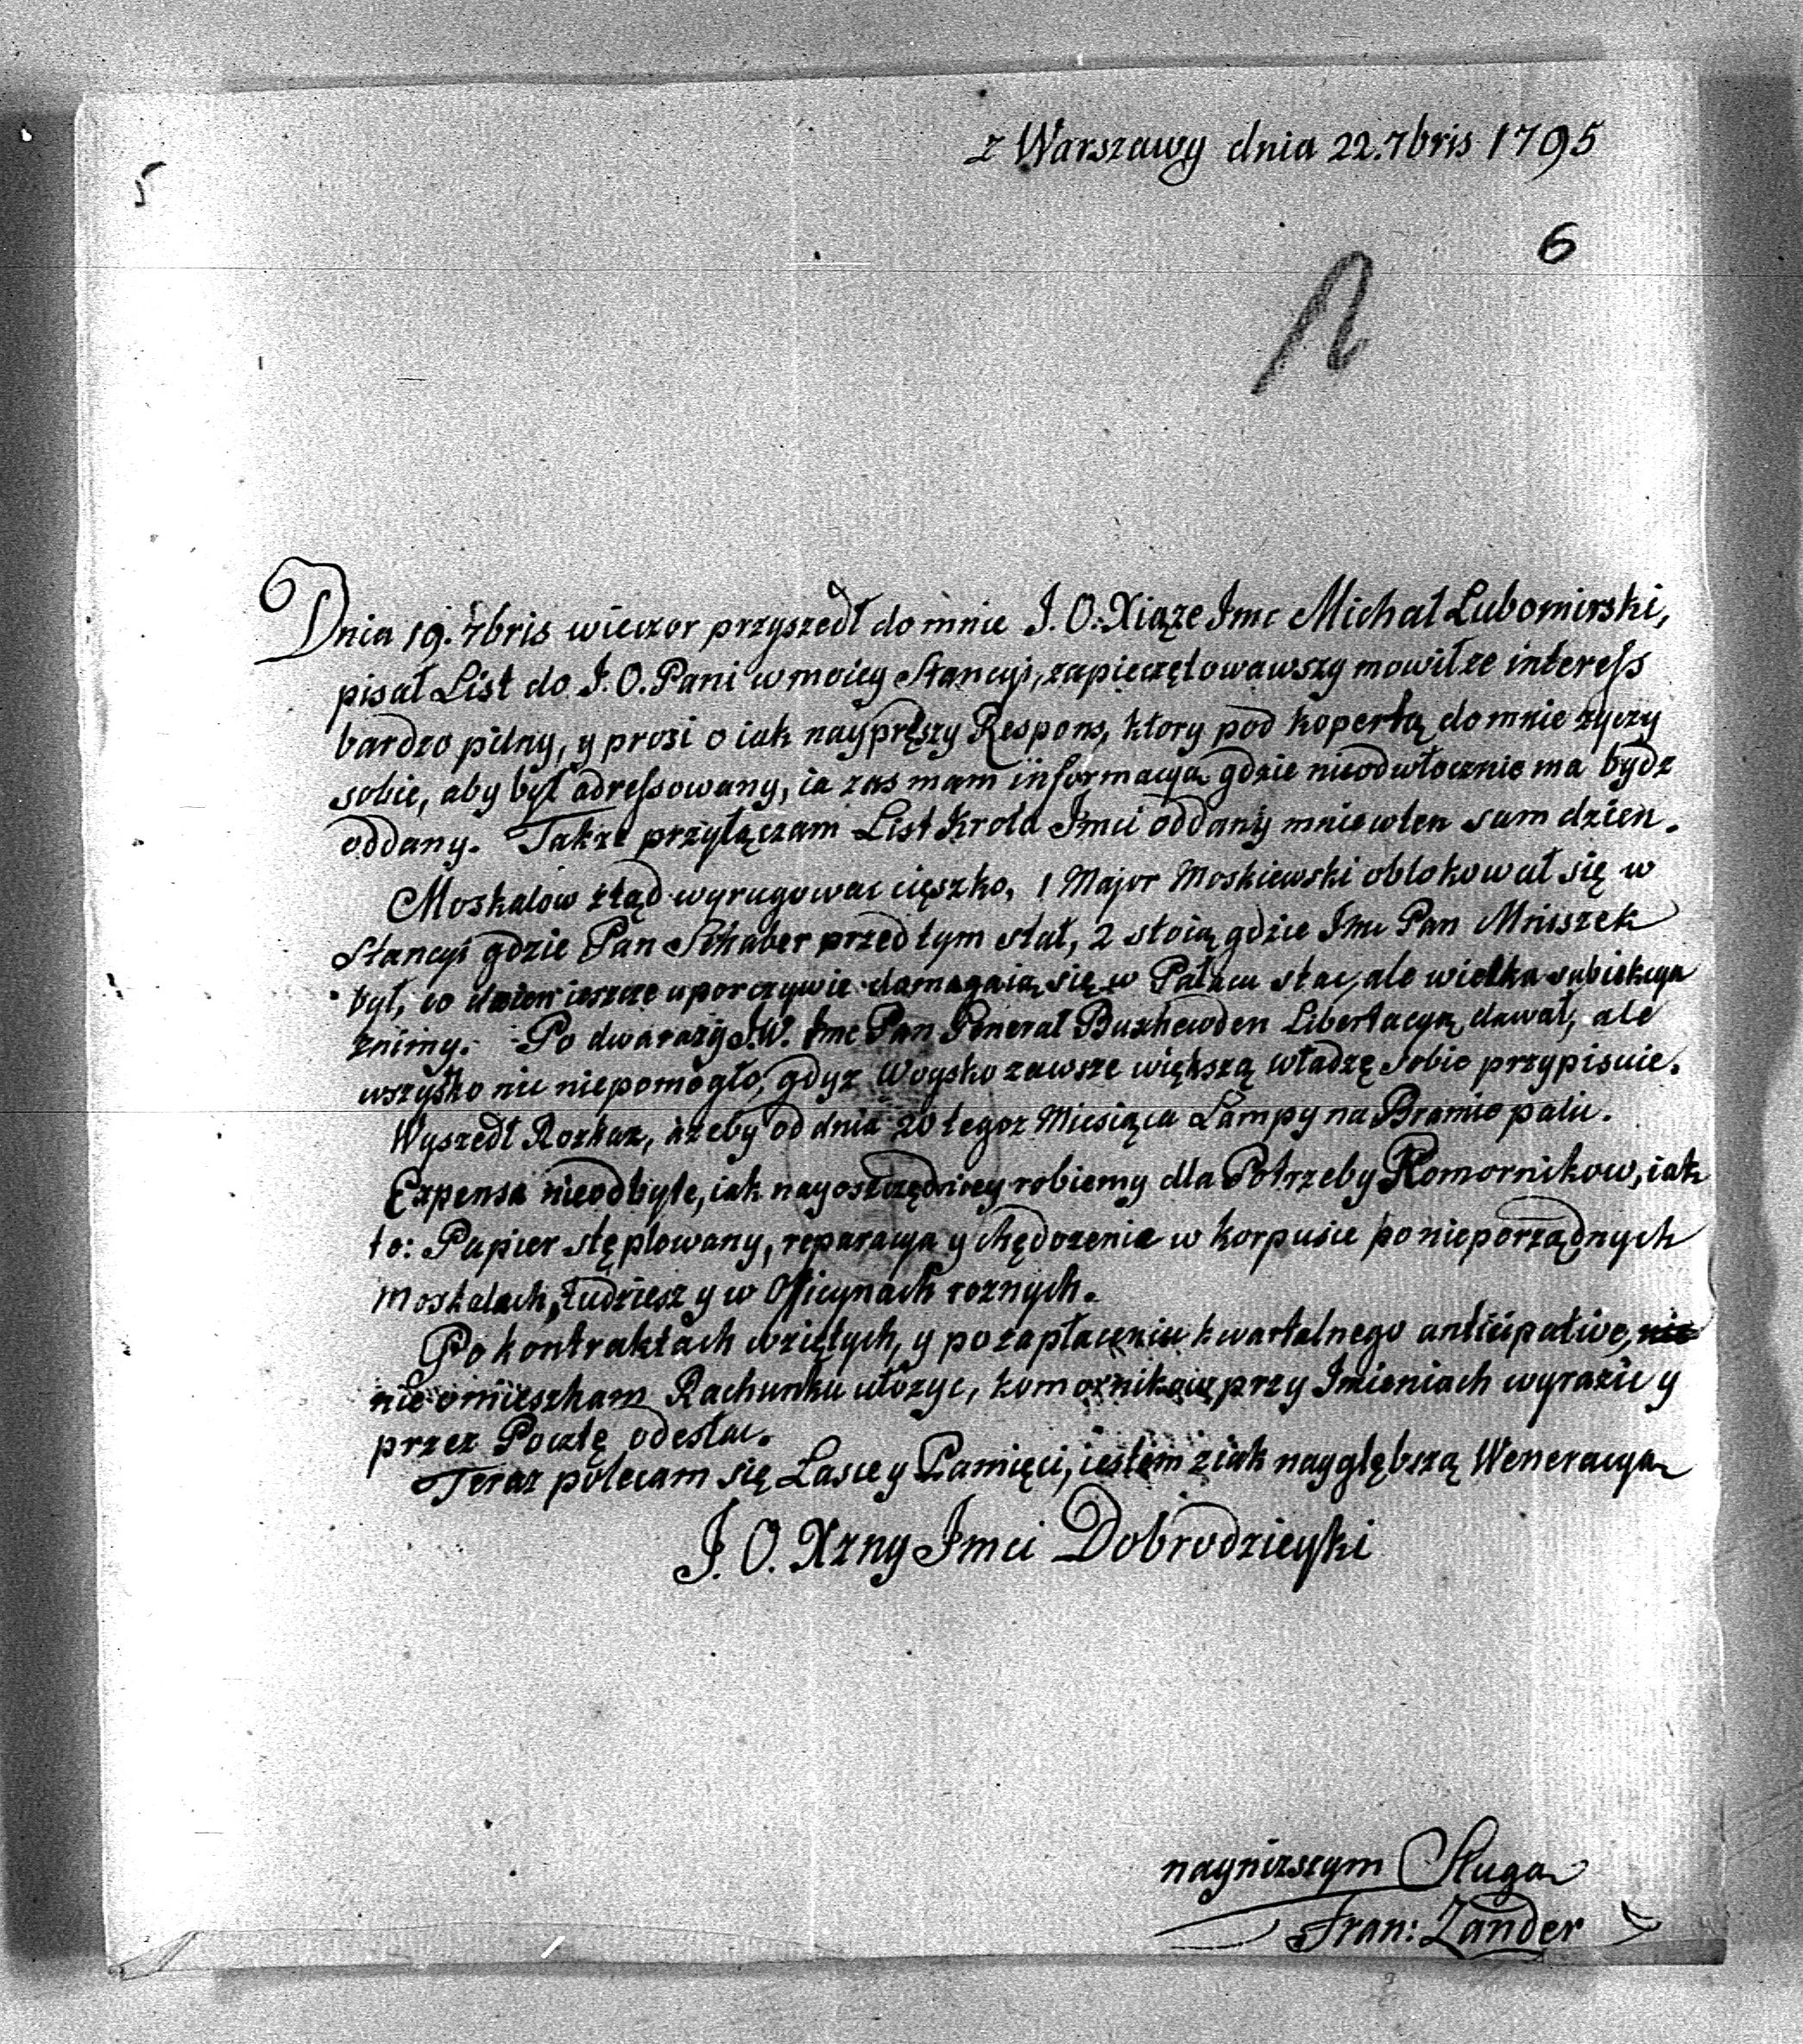 z Warszawy dnia 22. 7bris 1795
5
6
Dnia 19. 7bris wieczor przyszedł do mnie J. O. Xiąże Jmc Michał Lubomirski,
pisał List do J. O. Pani w moiey Stancyi, zapieczętowawszy mowił ze interess
bardzo pilny, y prosi o iak nayprętszy Respons, ktory pod kopertą do mnie zyczy
sobie, aby był adressowany, ia zas mam informacyą gdzie nieodwłocznie ma bydz
oddany. Takze przyłączam List Krola Jmci oddany mnie w ten sam dzien.
Moskalow ztąd wyrugowac cięszko, 1 Major Moskiewski oblokował się w
Stancyi gdzie Pan Schaber przed tym stał, 2 stoią gdzie Jmc Pan Mniszek
był, co dzien ieszcze uporczywie domagaią się w Pałacu stac, ale wielka subiekcya
znimy. Po dwa razy J.W. Jmc Pan Generał Buxhewden Libertacyą dawał, ale
wszysko nic niepomogło, gdyz Woysko zawsze większą władzę sobie przypisuie.
Wyszedł Rozkaz, azeby od dnia 20 tegoz Miesiąca Lampy na Bramie palic.
Expensa nieodbyte, iak nayoszczędniey robiemy dla Potrzeby Komornikow, iak
to: Papier stęplowany, reparacya y chędozenie w korpusie po nieporządnych
Moskalach, tudziesz y w Officynach roznych.
Po kontraktach wziętych, y po zapłaceniu kwartalnego anticipative, nie
nie omieszkam Rachunku ułozyc, komornikow przy Jmieniach wyrazic y
przez Pocztę odesłac.
Teraz polecam się Lasce y Pamięci, iestem z iak naygłębszą Weneracyą
J. O. Xzny Jmci Dobrodzieyki
naynizszym Sługą
Fran: Zander